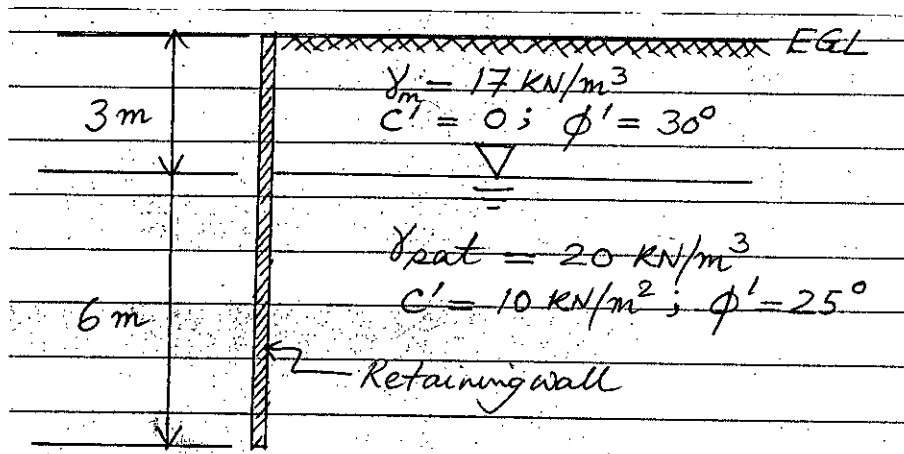 EGL
γm = 17 KN/m³
C' = 0 ; φ' = 30°
3 m
γsat = 20 KN/m³
C' = 10 KN/m² ; φ' = 25°
6 m
Retaining wall